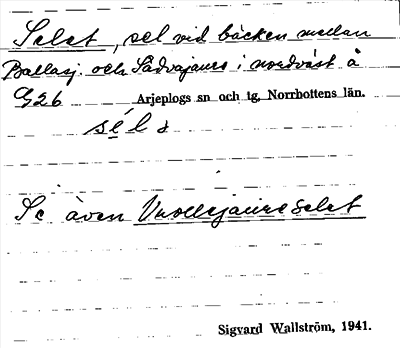 Selet, sel vid bäcken mellan
Ballasj. och Sädvajaure i nordväst å
G26 Arjeplogs sn och tg, Norrbottens län.
Se även Vuollejaureselet
Sigvard Wallström, 1941.